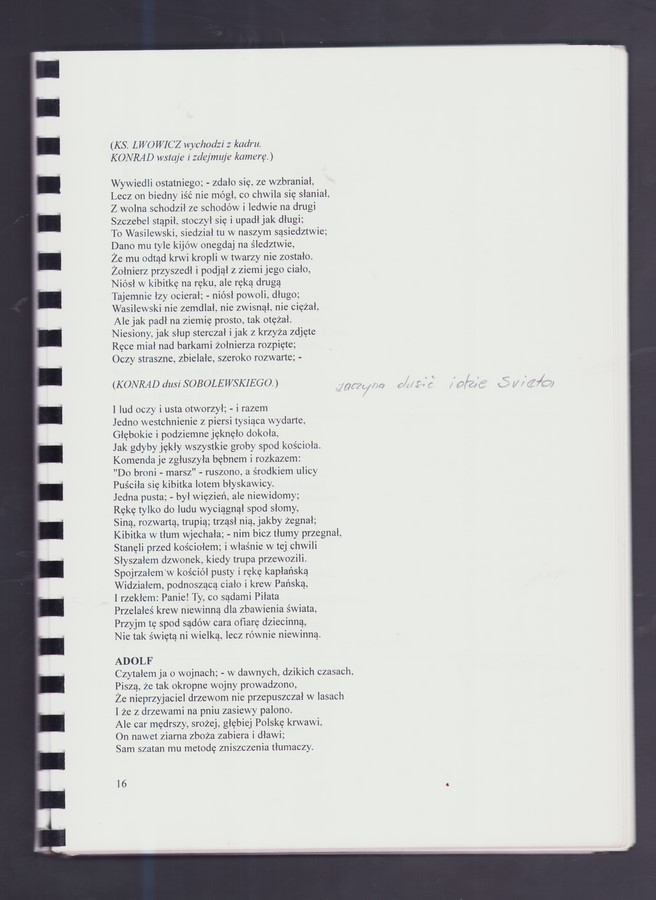 (KS. LWOWICZ wychodzi z kadru.
KONRAD wstaje i zdejmuje kamerę.)
Wywiedli ostatniego; - zdało się, ze wzbraniał,
Lecz on biedny iść nie mógł, co chwila się słaniał,
Z wolna schodził ze schodów i ledwie na drugi
Szczebel stąpił, stoczył się i upadł jak długi;
To Wasilewski, siedział tu w naszym sąsiedztwie;
Dano mu tyle kijów onegdaj na śledztwie,
Że mu odtąd krwi kropli w twarzy nie zostało.
Żołnierz przyszedł i podjął z ziemi jego ciało,
Niósł w kibitkę na ręku, ale ręką drugą
Tajemnie łzy ocierał; - niósł powoli, długo;
Wasilewski nie zemdlał, nie zwisnął, nie ciężał,
Ale jak padł na ziemię prosto, tak otężał.
Niesiony, jak słup sterczał i jak z krzyża zdjęte
Ręce miał nad barkami żołnierza rozpięte;
Oczy straszne, zbielałe, szeroko rozwarte; -
(KONRAD dusi SOBOLEWSKIEGO.) zaczyna dusić idzie Światło
I lud oczy i usta otworzył; - i razem
Jedno westchnienie z piersi tysiąca wydarte,
Głębokie i podziemne jęknęło dokoła,
Jak gdyby jękły wszystkie groby spod kościoła.
Komenda je zgłuszyła bębnem i rozkazem:
"Do broni - marsz" - ruszono, a środkiem ulicy
Puściła się kibitka lotem błyskawicy.
Jedna pusta; - był więzień, ale niewidomy;
Rękę tylko do ludu wyciągnął spod słomy,
Siną, rozwartą, trupią; trząsł nią, jakby żegnał;
Kibitka w tłum wjechała; - nim bicz tłumy przegnał,
Stanęli przed kościołem; i właśnie w tej chwili
Słyszałem dzwonek, kiedy trupa przewozili.
Spojrzałem w kościół pusty i rękę kapłańską
Widziałem, podnoszącą ciało i krew Pańską,
I rzekłem: Panie! Ty, co sądami Piłata
Przelałeś krew niewinną dla zbawienia świata,
Przyjm tę spod sądów cara ofiarę dziecinną,
Nie tak świętą ni wielką, lecz równie niewinną.
ADOLF
Czytałem ja o wojnach; - w dawnych, dzikich czasach,
Piszą, że tak okropne wojny prowadzono,
Że nieprzyjaciel drzewom nie przepuszczał w lasach
I że z drzewami na pniu zasiewy palono.
Ale car mędrszy, srożej, głębiej Polskę krwawi,
On nawet ziarna zboża zabiera i dławi;
Sam szatan mu metodę zniszczenia tłumaczy.
16